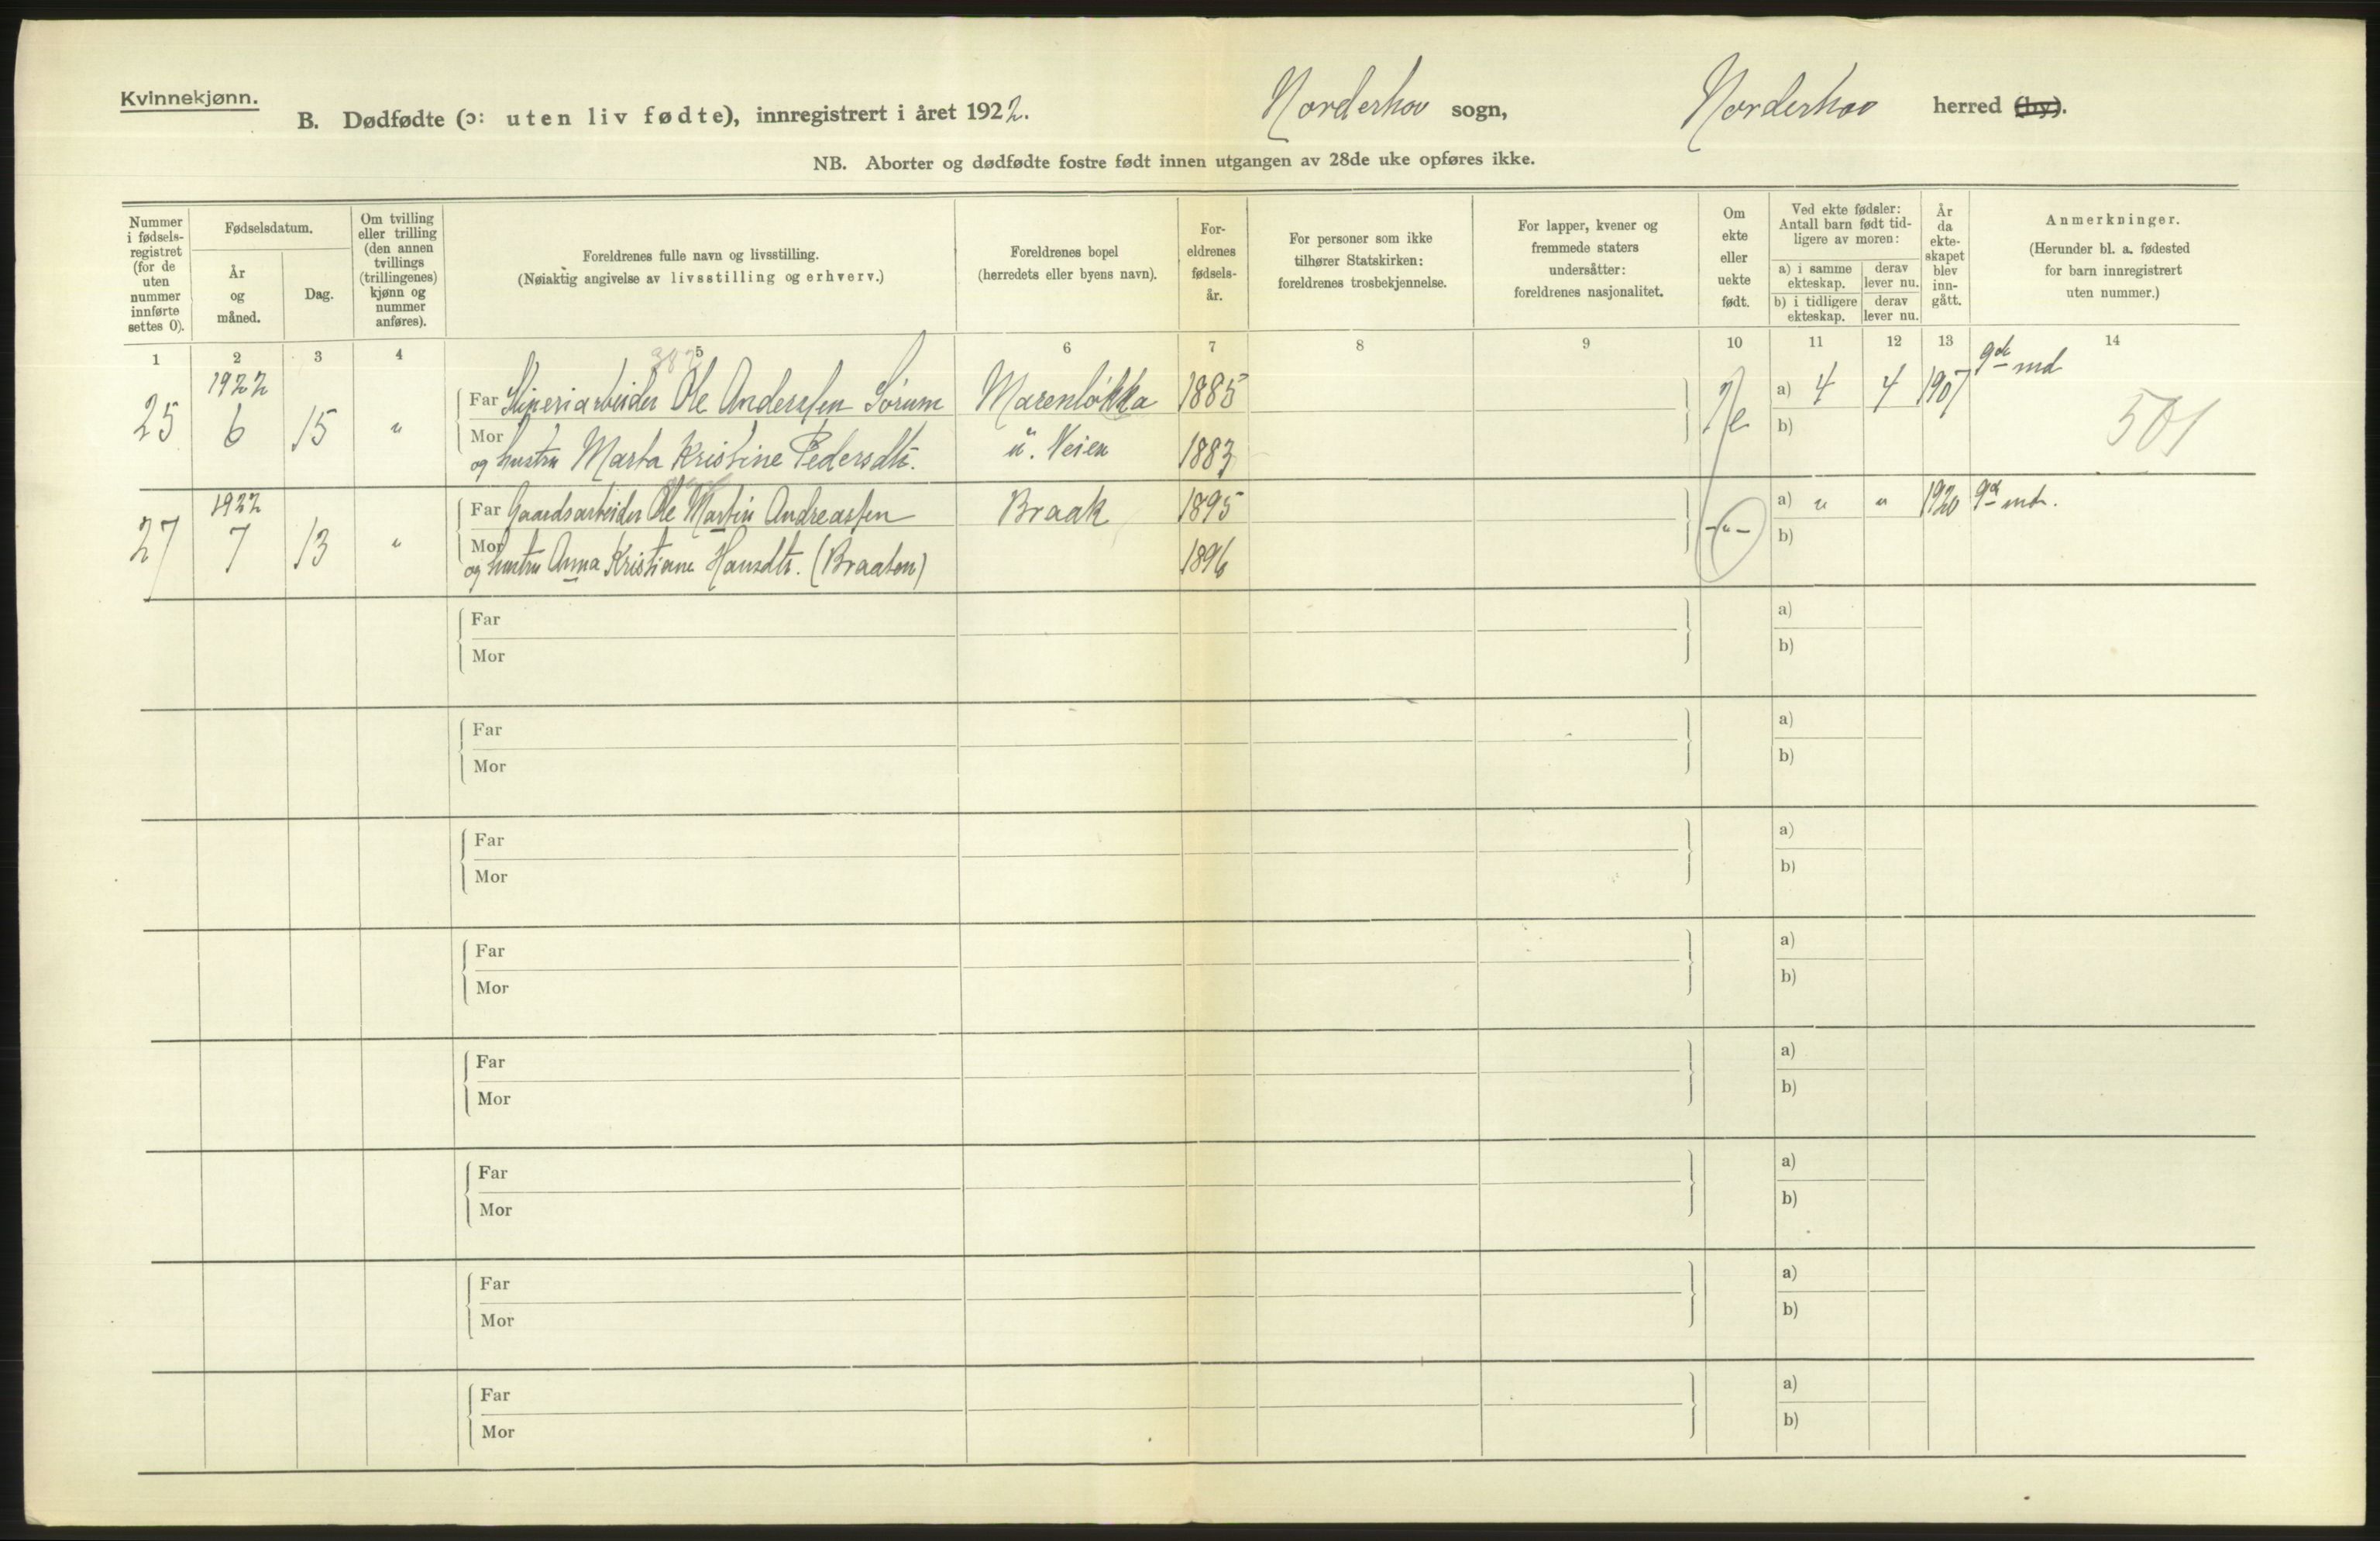 Kvinnekjønn.
B. Dødfødte (ɔ: uten liv fødte), innregistrert i året 1922. Norderhov sogn, Norderhov herred (by).
NB. Aborter og dødfødte fostre født innen utgangen av 28de uke opføres ikke.
Nummer i fødsels-registret (for de uten nummer innførte settes 0).
Fødselsdatum.
År og måned.
Dag.
Om tvilling eller trilling (den annen tvillings (trillingenes) kjønn og nummer anføres).
Foreldrenes fulle navn og livsstilling.
(Nøiaktig angivelse av livsstilling og erhverv.)
Foreldrenes bopel
(herredets eller byens navn).
For-eldrenes fødsels-år.
For personer som ikke tilhører Statskirken: foreldrenes trosbekjennelse.
For lapper, kvener og fremmede staters undersåtter: foreldrenes nasjonalitet.
Om ekte eller uekte født.
Ved ekte fødsler: Antall barn født tid-ligere av moren:
a) i samme ekteskap.
derav lever nu.
b) i tidligere ekteskap.
derav lever nu.
År da ekte-skapet blev inn-gått.
Anmerkninger.
(Herunder bl. a. fødested for barn innregistrert uten nummer.)
1 2 3 4 5 6 7 8 9 10 11 12 13 14
25 1922 6 15 "
Far Sliperiarbeider Ole Anderssen Sørum Marenløkka 1885 a) 4 4 1907 9de md
Mor og hustru Marta Kristine Pedersdtr. u. Veien 1883 b)
501
27 1922 7 13 "
Far Gaardsarbeider Ole Martin Andreassen Braak 1895 -"- a) " " 1920 9d md.
Mor og hustru Anna Kristiane Hansdtr. (Braaten) 1896 b)
Far a)
Mor b)
Far a)
Mor b)
Far a)
Mor b)
Far a)
Mor b)
Far a)
Mor b)
Far a)
Mor b)
Far a)
Mor b)
Far a)
Mor b)